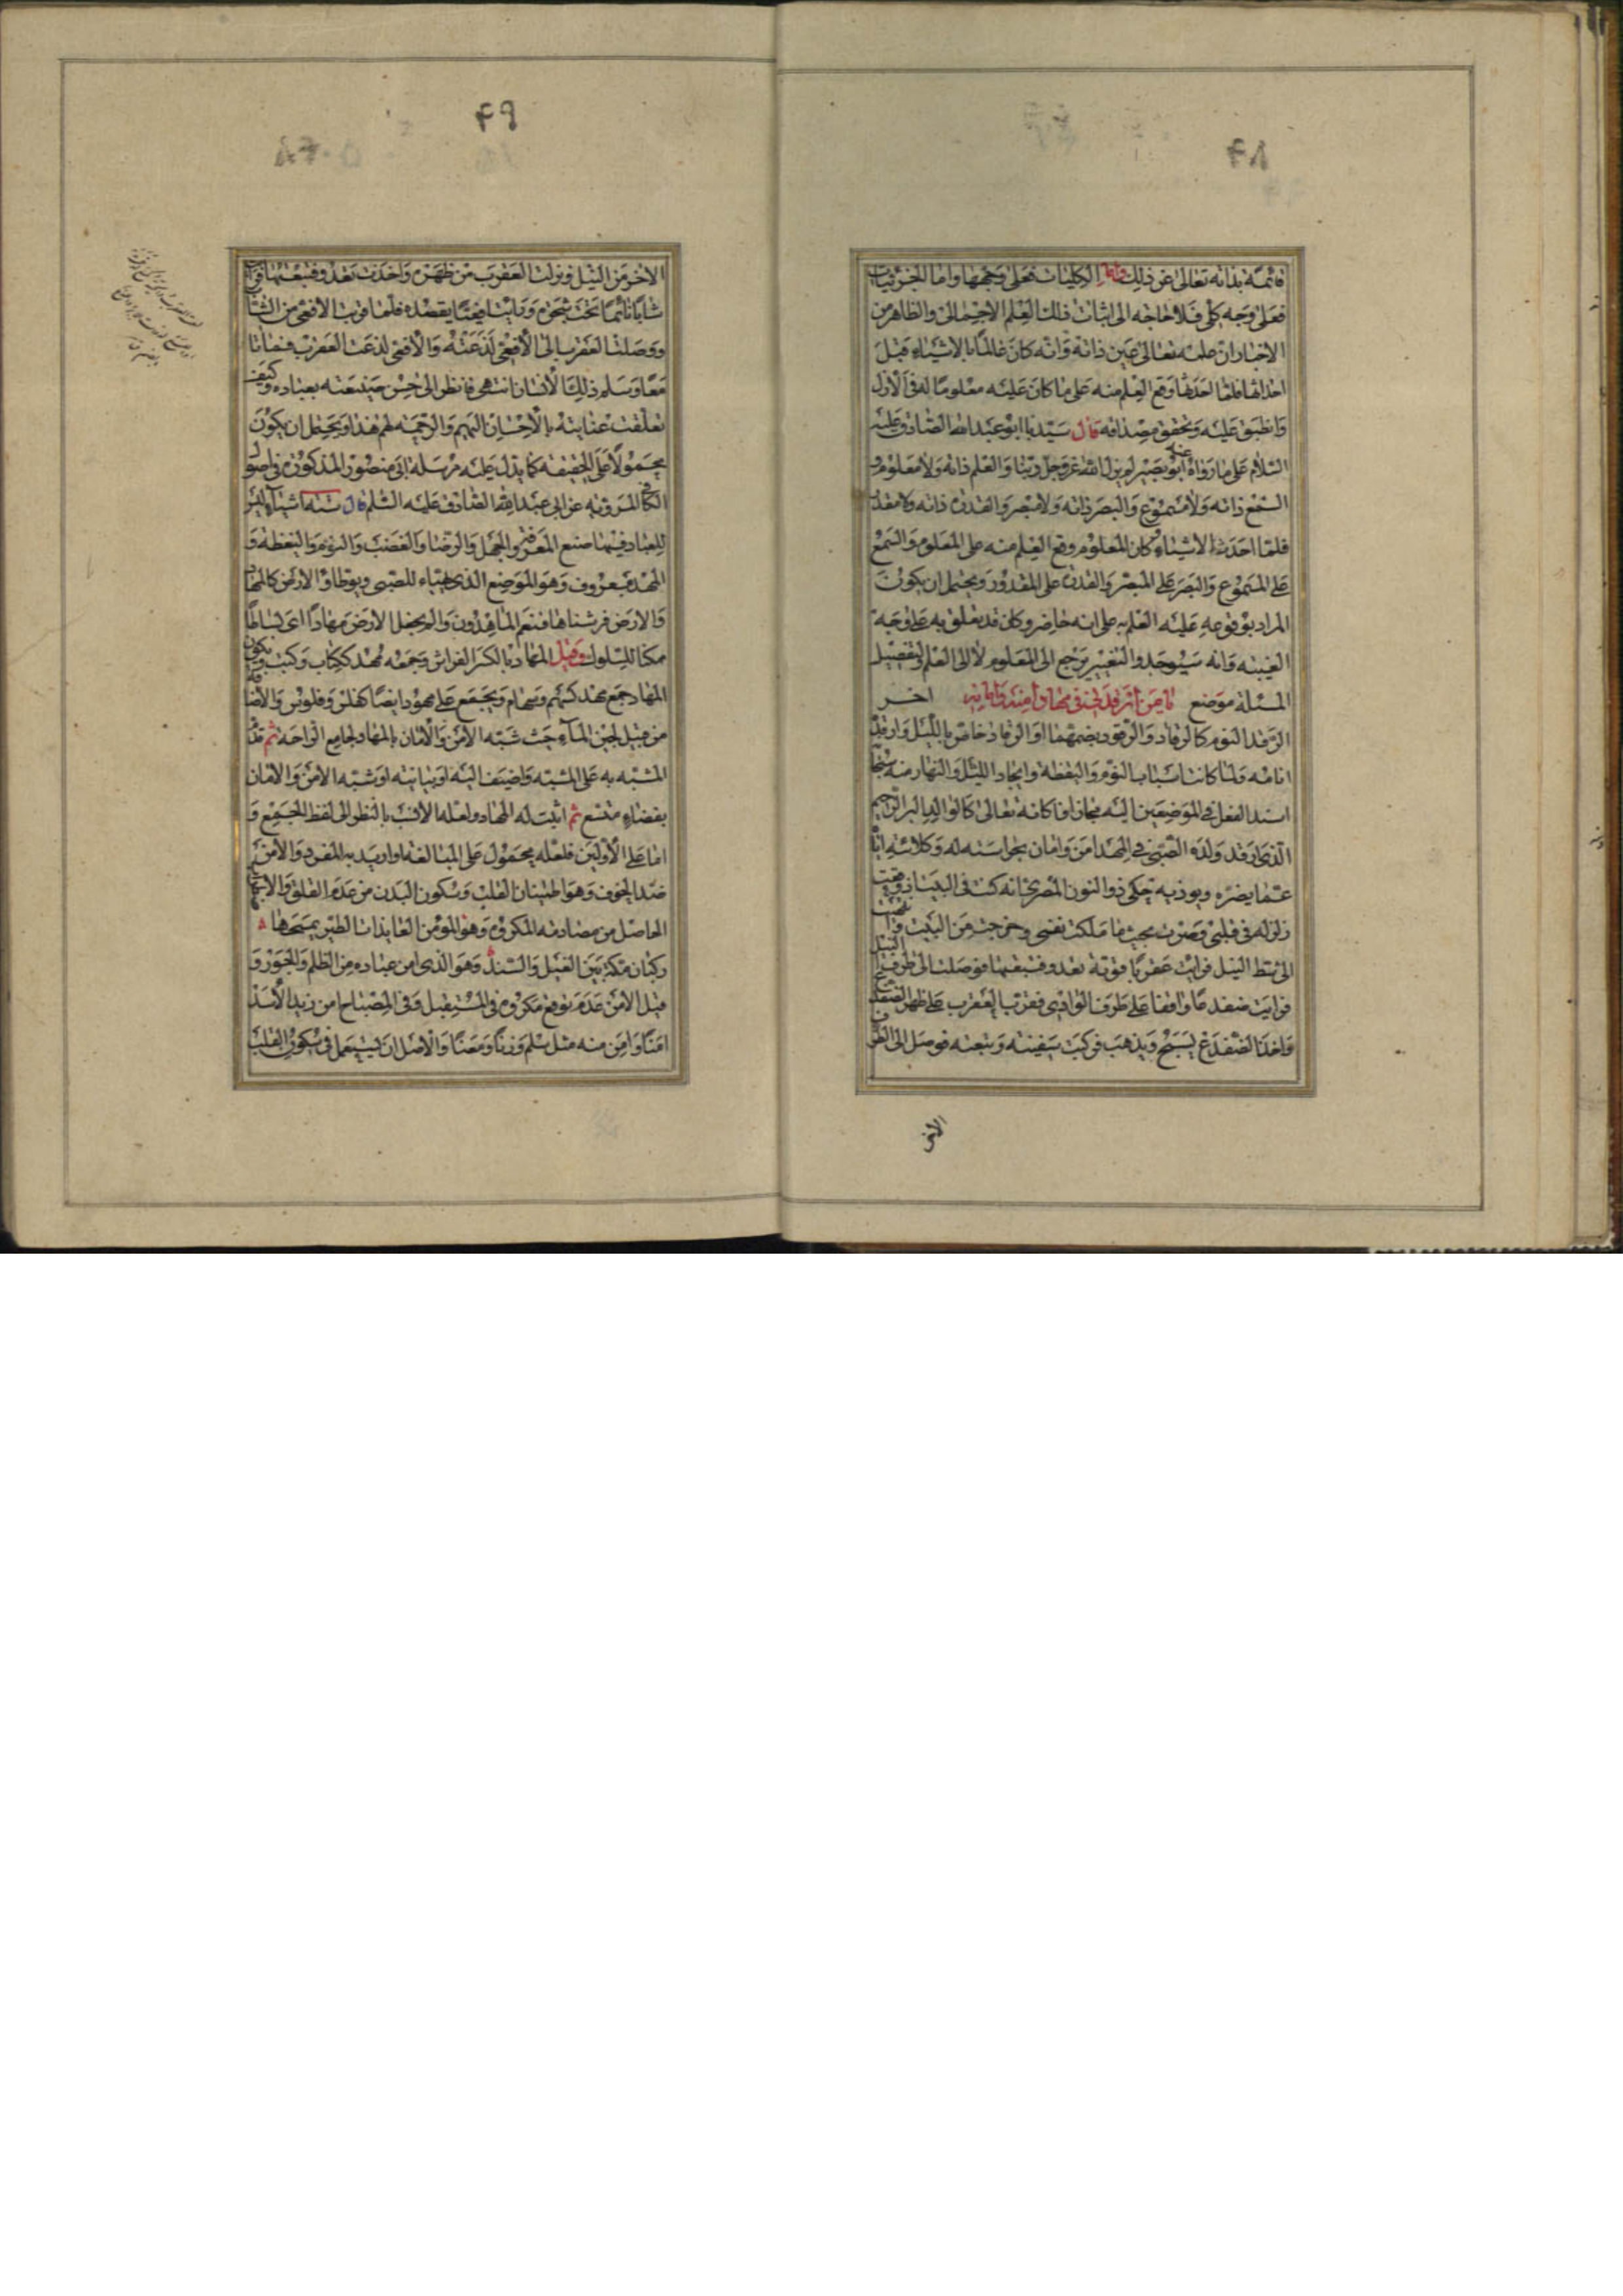 ۴۸
قائمة بذاته تعالى عن ذلك واما الكليات فعلى وجهها واما الجزئيات
فعلى وجه كلى فلا حاجة الى اثبات ذلك العلم الاجمالى والظاهر من
الاخبار ان علمه تعالى عين ذاته وانه كان عالما بالاشياء قبل
احداثها فلما احدثها وقع العلم منه على ما كان عليه معلوما له فى الازل
وانطبق عليه وتحقق مصداقه قال سيدنا ابو عبد الله الصادق عليه
السلام على ما رواه عنه ابو بصير لم يزل الله عز وجل ربنا والعلم ذاته ولا معلوم و
السمع ذاته ولا مسموع والبصر ذاته ولا مبصر والقدرة ذاته ولا مقدور
فلما احدث الاشياء وكان المعلوم وقع العلم منه على المعلوم والسمع
على المسموع والبصر على المبصر والقدرة على المقدور ويحتمل ان يكون
المراد بوقوعه عليه العلم به على انه حاضر وكان قد تعلق به على وجه
الغيبة وانه سيوجد والتغيير يرجع الى المعلوم لا الى العلم ولتفصيل
المسئلة موضع اخر يا من ارقدنى فى مهاد امنه وامانه
الرقد النوم كالرقاد والرقود بضمهما او الرقاد خاص بالليل وارقده
انامه ولما كانت اسباب النوم واليقظة وايجاد الليل والنهار منه سبحانه
اسند الفعل فى الموضعين اليه مجازا فكانه تعالى كالوالد البر الرحيم
الذى ارقد ولده الصبى فى المهد امن وامان بحراسته له وكلائته اياه
عما يضره ويوذيه حكى ذو النون المصرى انه كنت فى البيت اذ وقعت
زلزلة فى قلبى وصرت بحيث ما ملكت نفسى وخرجت من البيت فذهبت
الى شط النيل فرايت عقربا قوية تعدو فتبعتها فوصلت الى طرف النيل
فرايت ضفدعا واقفا على طرف الوادى فقرب العقرب على ظهر الضفدع
واخذ الضفدع يسبح ويذهب فركبت سفينة وتبعته فوصل الى الطرف
الاخر
۴۹
الاخر من النيل ونزلت العقرب من ظهره واخذت تعدو فتبعتها فرايت
شابا نائما تحت شجرة ورايت افعيا يقصده فلما قرب الافعى من الشاب
ووصلت العقرب الى الافعى لذعته والافعى لذعت العقرب فماتا
معا وسلم ذلك الانسان انتهى فانظر الى حسن صنيعته بعباده وكيف
تعلقت عنايته بالاحسان اليهم والرحمة لهم هذا ويحتمل ان يكون
محمولا على الحقيقة كما يدل عليه مرسلة ابى منصور المذكورة فى اصول
الكافى المروية عن ابى عبد الله الصادق عليه السلام قال ستة اشياء ليس
للعباد فيها صنع المعرفة والجهل والرضا والغضب والنوم واليقظة و
المهد معروف وهو الموضع الذى يهياء للصبى ويوطاؤ الارض كالمهاد
والارض فرشناها فنعم الماهدون والم يجعل الارض مهادا اى بساطا
ممكنا للسلوك وقيل المهاد بالكسر الفراش وجمعه مهد ككتاب وكتب ويكون
المهاد جمع مهد كسهم وسهام ويجمع على مهود ايضا كفلس وفلوس والاضافة
من قبيل لجين الماء حيث شبه الامن والامان بالمهاد لجامع الراحة ثم قدم
المشبه به على المشبه واضيف اليه او بيانية او شبه الامن والامان
بفضاء متسع ثم اثبت له المهاد ولعله الانسب بالنظر الى لفظ الجمع و
اما على الاولين فلعله محمول على المبالغة او اريد به المفرد والامن
ضد الخوف وهو اطمينان القلب وسكون البدن من عدم القلق والابتهاج
الحاصل من مصادفة المكروه وهو المؤمن العائذات الطير يمسحها
ركبان مكة بين الغيل والسند وهو الذى امن عباده من الظلم والجور و
قيل الامن عدم توقع مكروه فى المستقبل وفى المصباح امن زيد الاسد
امنا وامن منه مثل سلم وزنا ومعنا والاصل ان يستعمل فى سكون القلب